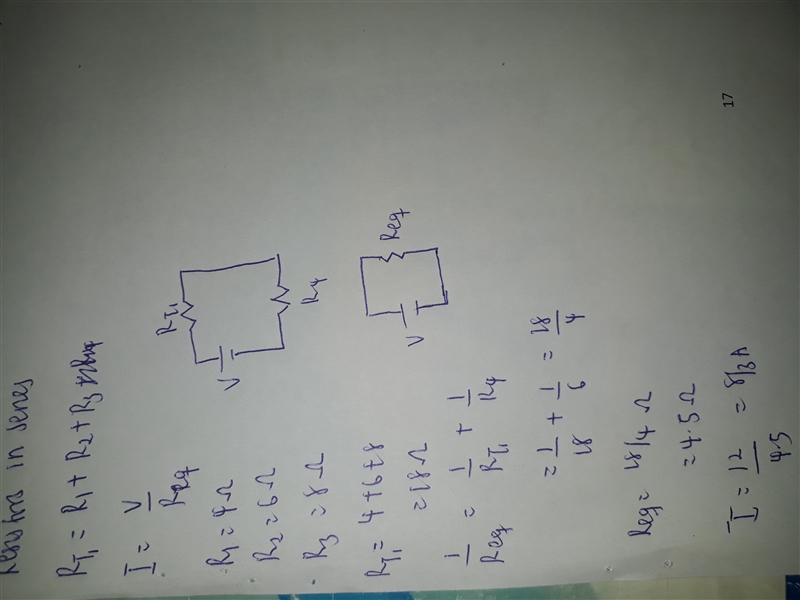 Resistors in series
R_T1 = R1 + R2 + R3
I = V/Req
R1 = 4Ω
R2 = 6Ω
R3 = 8Ω
R_T1 = 4+6+8
= 18Ω
1/Req = 1/R_T1 + 1/R4
= 1/18 + 1/6 = 18/4
Req = 18/4 Ω
= 4.5Ω
I = 12/4.5 = 8/3 A
R_T1
V
R4
Req
V
17